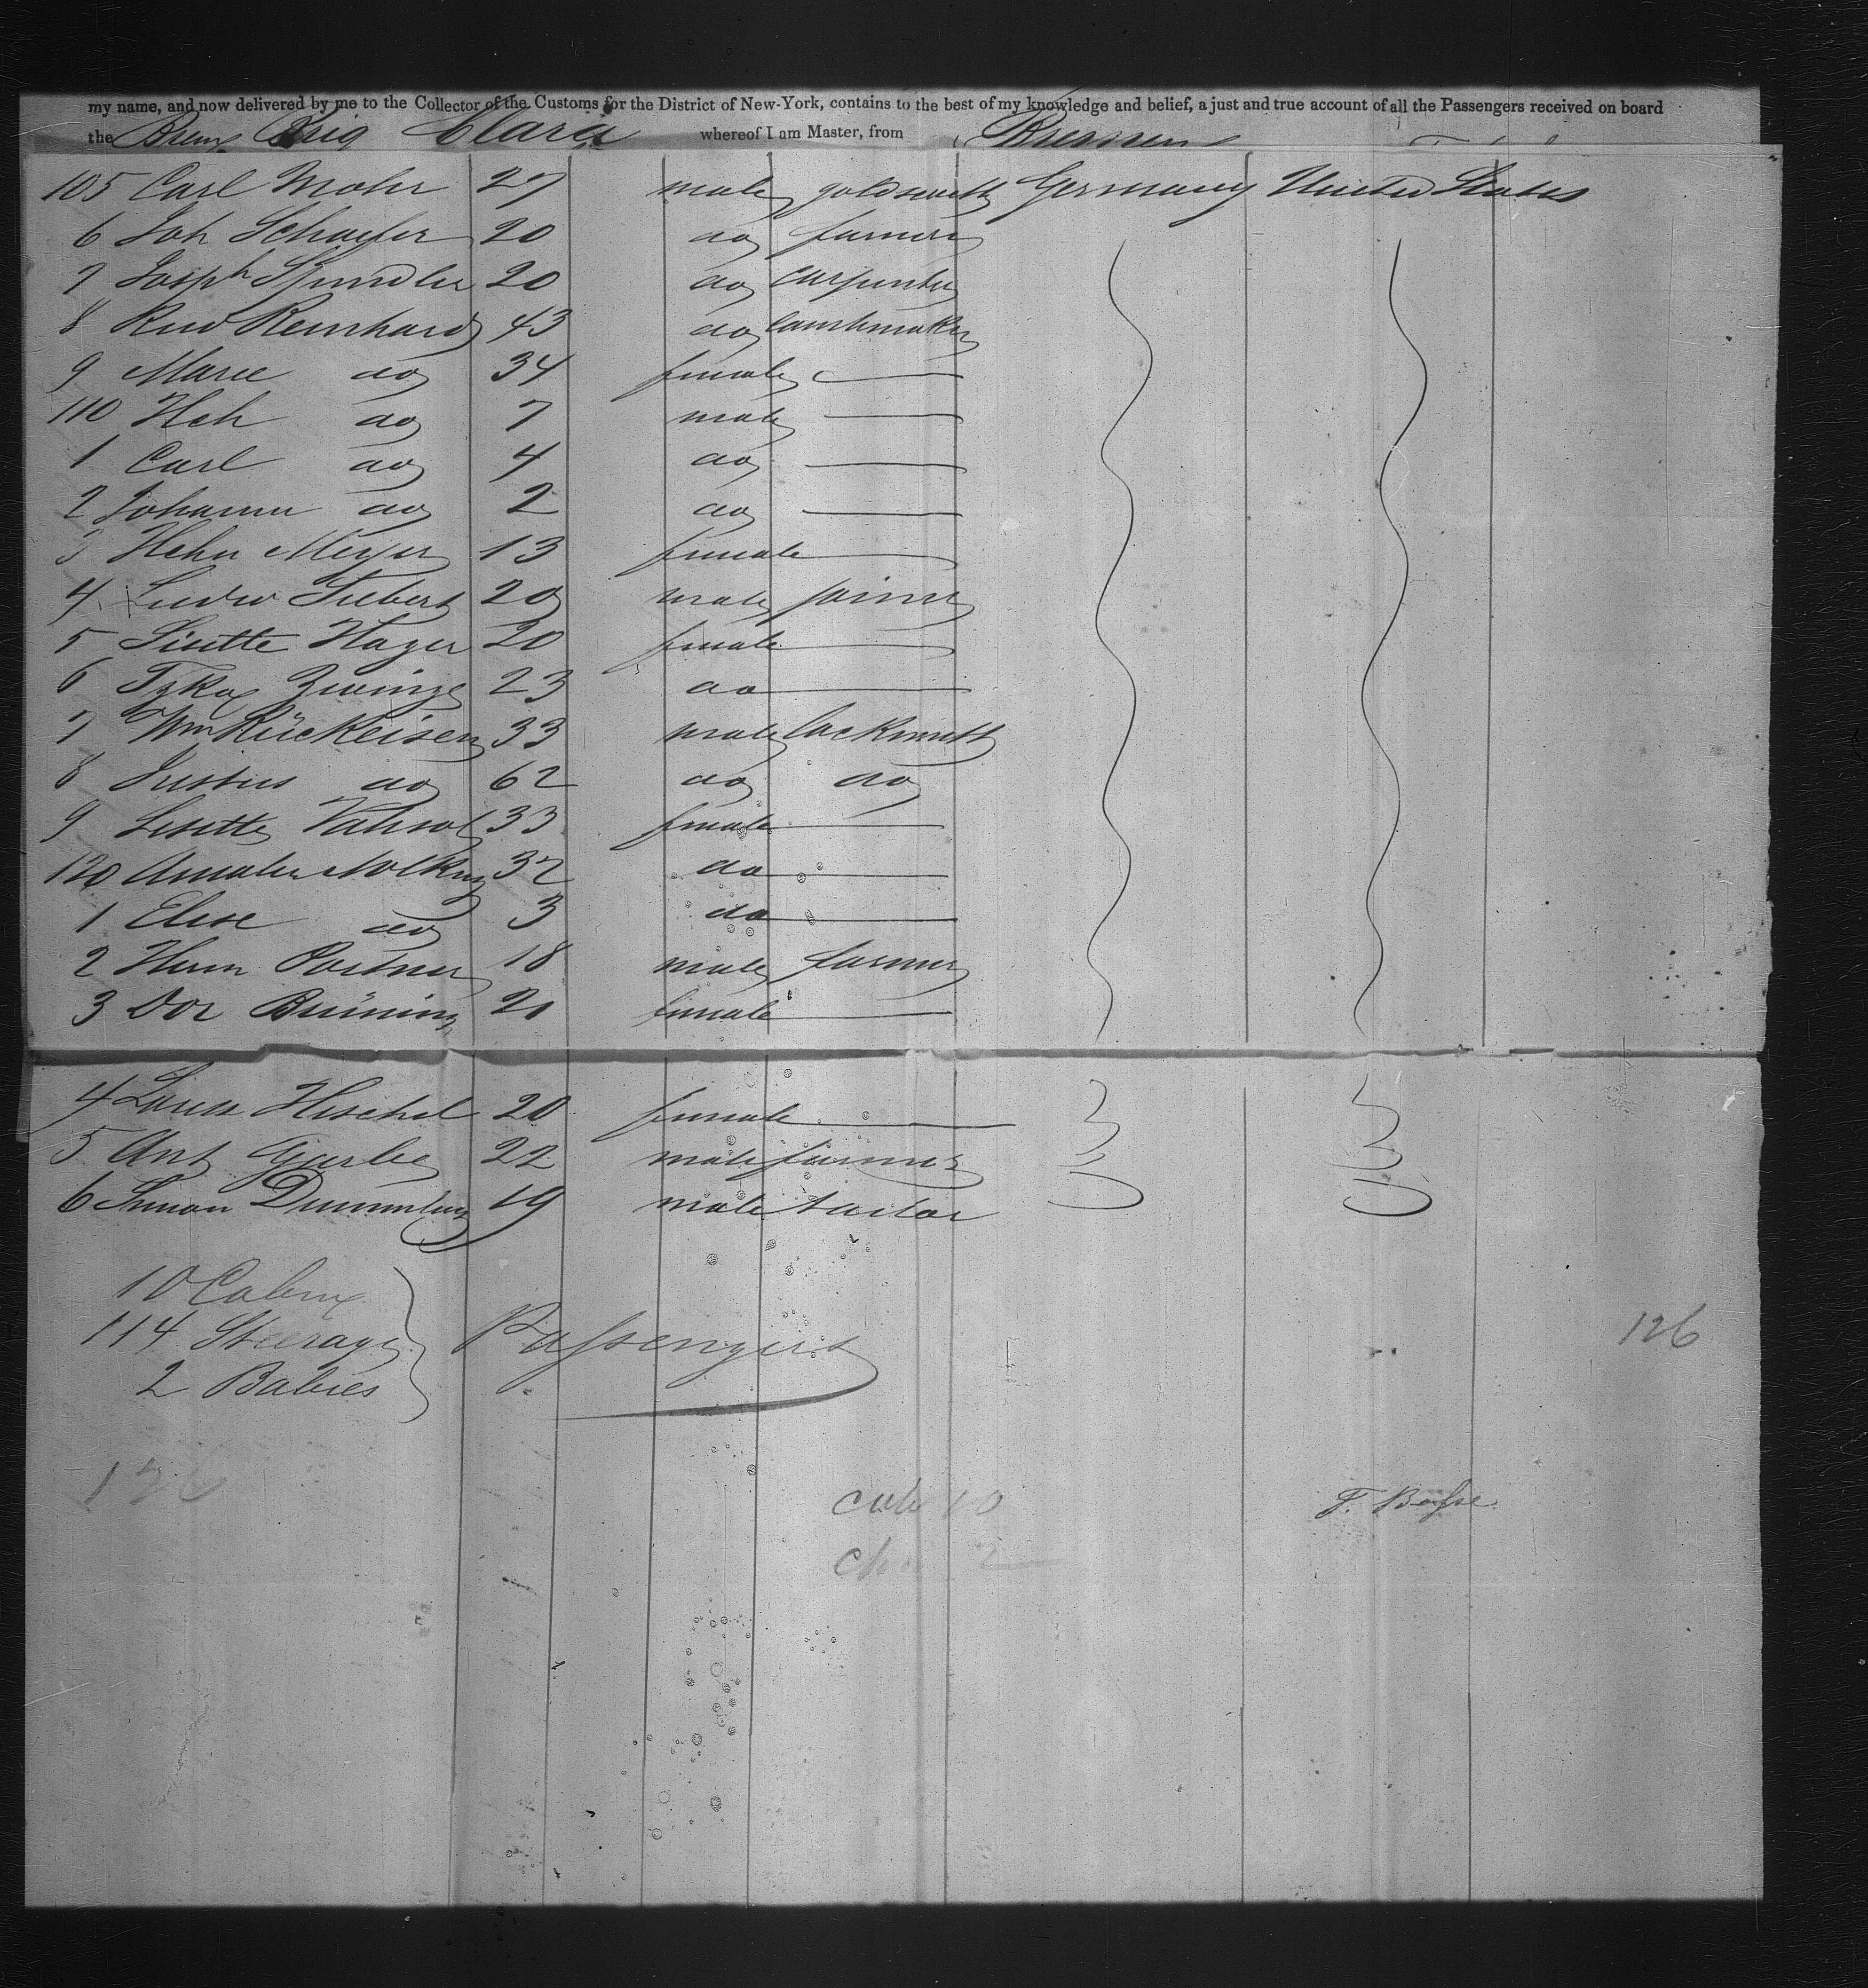 my name, and now delivered by me to the Collector of the Customs for the District of New-York, contains to the best of my knowledge and belief, a just and true account of all the Passengers received on board
the Brem Brig Clara whereof I am Master, from Bremen
105 Carl Mohr 27 male goldsmith Germany United States
6 Joh Schaefer 20 do farmer
7 Joseph Spindler 20 do carpenter
8 Rud Reinhard 43 do
9 Marie do 34 female
110 Hch do 7 male
1 Carl do 4 do
2 Johann do 2 do
3 Meyer 13 female
4 Ludw Siebert 20 male joiner
5 Lisette Hager 20 female
6 23 do
7 Wm Rückeisen 33 male locksmith
8 Justus do 62 do do
9 Lisette 33 female
120 32 do
1 Elise do 3 do
2 Herm 18 male farmer
3 Dor Brüning 21 female
4 Louise 20 female
5 Ant 22 male farmer
6 Simon 19 male tailor
10 Cabin
114 Steerage Passengers 126
2 Babies
126
cab 10 F.
2